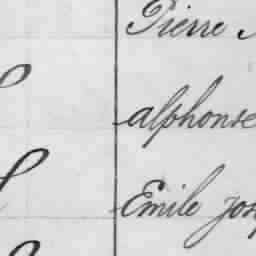 Pierre
alphonse
Emile